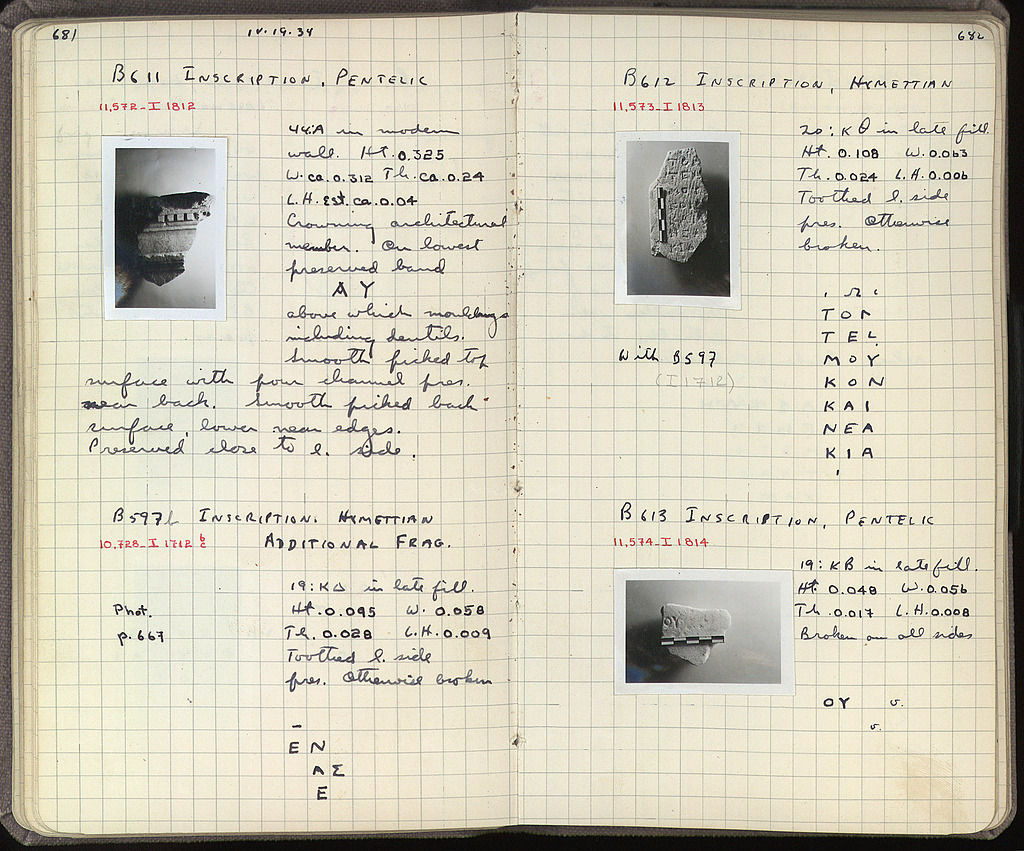 681
IV.19.34
B611 INSCRIPTION, PENTELIC
11,572–I 1812
44:A in modern
wall. Ht. 0.325
W. ca. 0.312 Th. ca. 0.24
L.H. Est. ca. 0.04
Crowning architectural
member. On lowest
preserved band
ΑΥ
above which mouldings
including dentils.
Smooth picked top
surface with pour channel pres.
near back. Smooth picked back
surface, lower near edges.
Preserved close to l. side.
B597b INSCRIPTION. HYMETTIAN
10,728–I 1712 b c
ADDITIONAL FRAG.
Phot.
p. 667
19:ΚΔ in late fill.
Ht. 0.095 W. 0.058
Th. 0.028 L.H. 0.009
Toothed l. side
pres. Otherwise broken
–
Ε Ν
Α Σ
Ε
682
B612 INSCRIPTION, HYMETTIAN
11,573–I 1813
20:ΚΘ in late fill.
Ht. 0.108 W. 0.063
Th. 0.024 L.H. 0.006
Toothed l. side
pres. Otherwise
broken.
With B597
(I 1712)
Ω
ΤΟ
ΤΕ
ΜΟΥ
ΚΟΝ
ΚΑΙ
ΝΕΑ
ΚΙΑ
B613 INSCRIPTION, PENTELIC
11,574–I 1814
19:ΚΒ in late fill.
Ht. 0.048 W. 0.056
Th. 0.017 L.H. 0.008
Broken on all sides
ΟΥ v.
v.